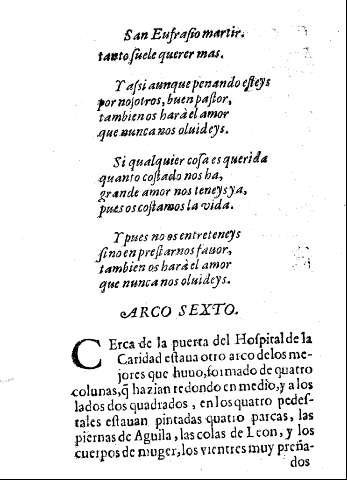 San Eufrasio martir.
tanto suele querer mas.
Y assi aunque penando esteys
por nosotros, buen pastor,
tambien os harà el amor
que nunca nos oluideys.
Si qualquier cosa es querida
quanto costado nos ha,
grande amor nos teneys ya,
pues os costamos la vida.
Y pues no os entreteneys
sino en prestarnos fauor,
tambien os harà el amor
que nunca nos oluideys.
ARCO SEXTO.
CErca de la puerta del Hospital de la
Caridad estaua otro arco delos me-
jores que huuo, formado de quatro
colunas, q̃ hazian redondo en medio, y a los
lados dos quadrados, en los quatro pedes-
tales estauan pintadas quatro parcas, las
piernas de Aguila, las colas de Leon, y los
cuerpos de muger, los vientres muy preña-
dos